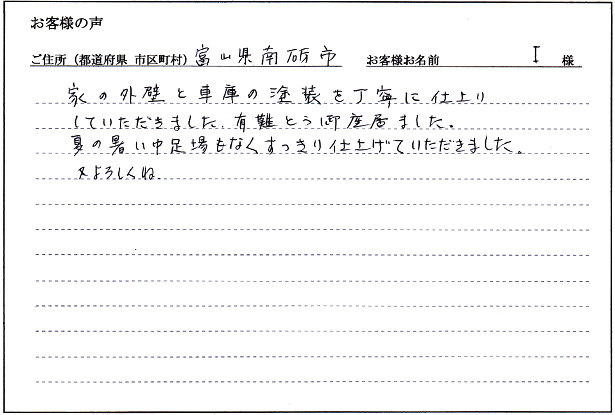 お客様の声
ご住所（都道府県 市区町村） 富山県南砺市 お客様お名前 I 様
家の外壁と車庫の塗装を丁寧に仕上り
していただきました。有難とう御座居ました。
夏の暑い中足場もなくすっきり仕上げていただきました。
又よろしくね